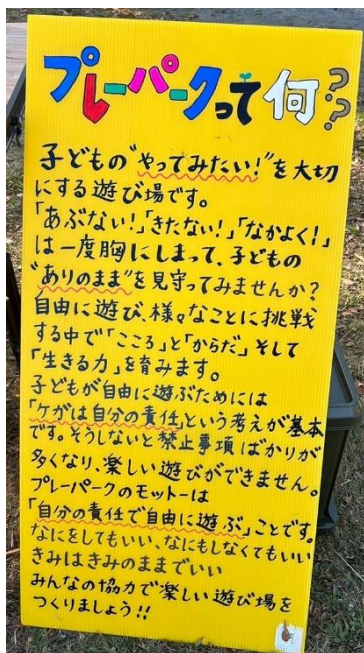 プレーパークって何??
子どもの"やってみたい!"を大切
にする遊び場です。
「あぶない!」「きたない!」「なかよく!」
は一度胸にしまって、子どもの
"ありのまま"を見守ってみませんか?
自由に遊び、様々なことに挑戦
する中で「こころ」と「からだ」そして
「生きる力」を育みます。
子どもが自由に遊ぶためには
「ケガは自分の責任」という考えが基本
です。そうしないと禁止事項ばかりが
多くなり、楽しい遊びができません。
プレーパークのモットーは
「自分の責任で自由に遊ぶ」ことです。
なにをしてもいい、なにもしなくてもいい
きみはきみのままでいい
みんなの協力で楽しい遊び場を
つくりましょう!!